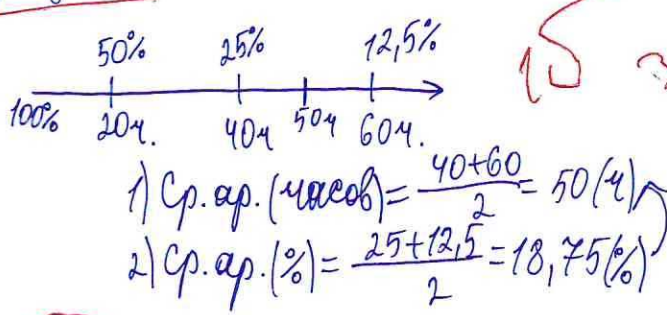 50% 25% 12,5%
100% 20ч. 40ч 50ч 60ч.
1) Ср. ар. (часов) = (40+60)/2 = 50 (ч)
2) Ср. ар. (%) = (25+12,5)/2 = 18,75(%)